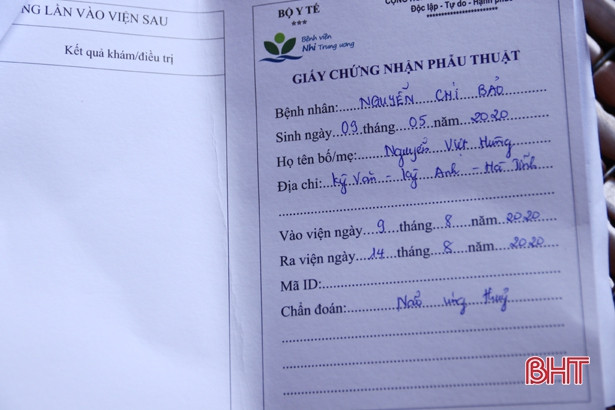 NG LẦN VÀO VIỆN SAU
Kết quả khám/điều trị
BỘ Y TẾ
***
Độc lập - Tự do - Hạnh phúc
Bệnh viện
Nhi Trung ương
GIẤY CHỨNG NHẬN PHẪU THUẬT
Bệnh nhân: NGUYỄN CHÍ BẢO
Sinh ngày 09 tháng 05 năm 2020
Họ tên bố/mẹ: Nguyễn Việt Hưng
Địa chỉ: Kỳ Văn - Kỳ Anh - Hà Tĩnh
Vào viện ngày 9 tháng 8 năm 2020
Ra viện ngày 14 tháng 8 năm 2020
Mã ID:
Chẩn đoán: Não úng thuỷ
BHT